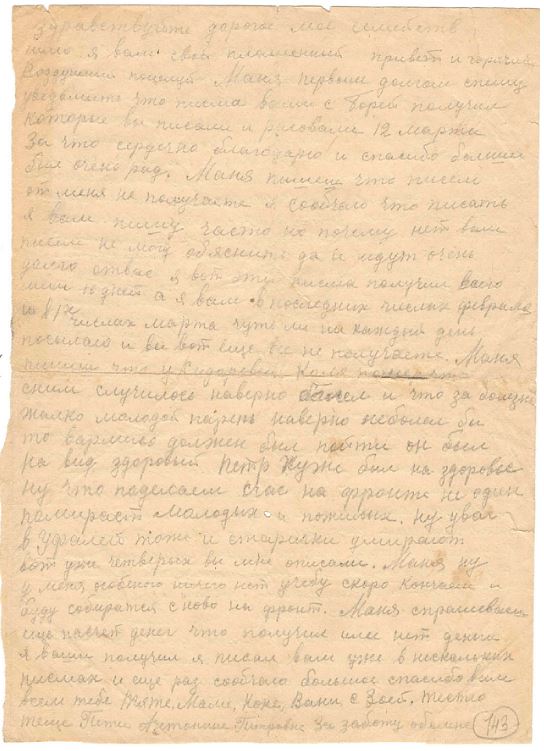 Здравствуйте дорогое мое семейств
шлю я вам свой пламенный привет и горячий
воздушный поцелуй. Маня первым долгом спешу
уведомить что писма вами с Борей получил
которые вы писали и рисовали 12 марта
За что сердечно благодарю и спасибо большее
был очень рад. Маня пишеш что писем
от меня не получаете я сообчаю что писать
я вам пишу часто но почему нет вам
писем не могу обяснить да и идут очень
долго от вас я вот эти писма получил всего
дней а я вам в последних числах февраля
и в числах марта чуть ли на каждый день
посылаю и вы вот еще все не получаете. Маня
пишеш что у Сидоровых Коля помер что
сним случилось наверно болел и что за болезнь
жалко молодой парень наверно неболел бы
то вармию должен был пойти он был
на вид здоровый Петр Куже был на здоровье
ну что поделаем счас на фронте не один
помирает молодых и пожилых. ну у вас
в Уфалей тожи и старички умирают
вот уже четверых вы мне описали. Маня ну
у меня особеного ничего нет учебу скоро кончаем и
буду собиратся сново на фронт. Маня спрашеваеш
еще насчет денег что получил или нет деньги
я ваши получил я писал вам уже в нескольких
писмах и еще раз сообчаю большое спасибо вам
всем тебе, Тяте, Маме, Коке, Вани, с Зоей. Тестю
теще Пети Антонине Петровне За заботу обомне
143